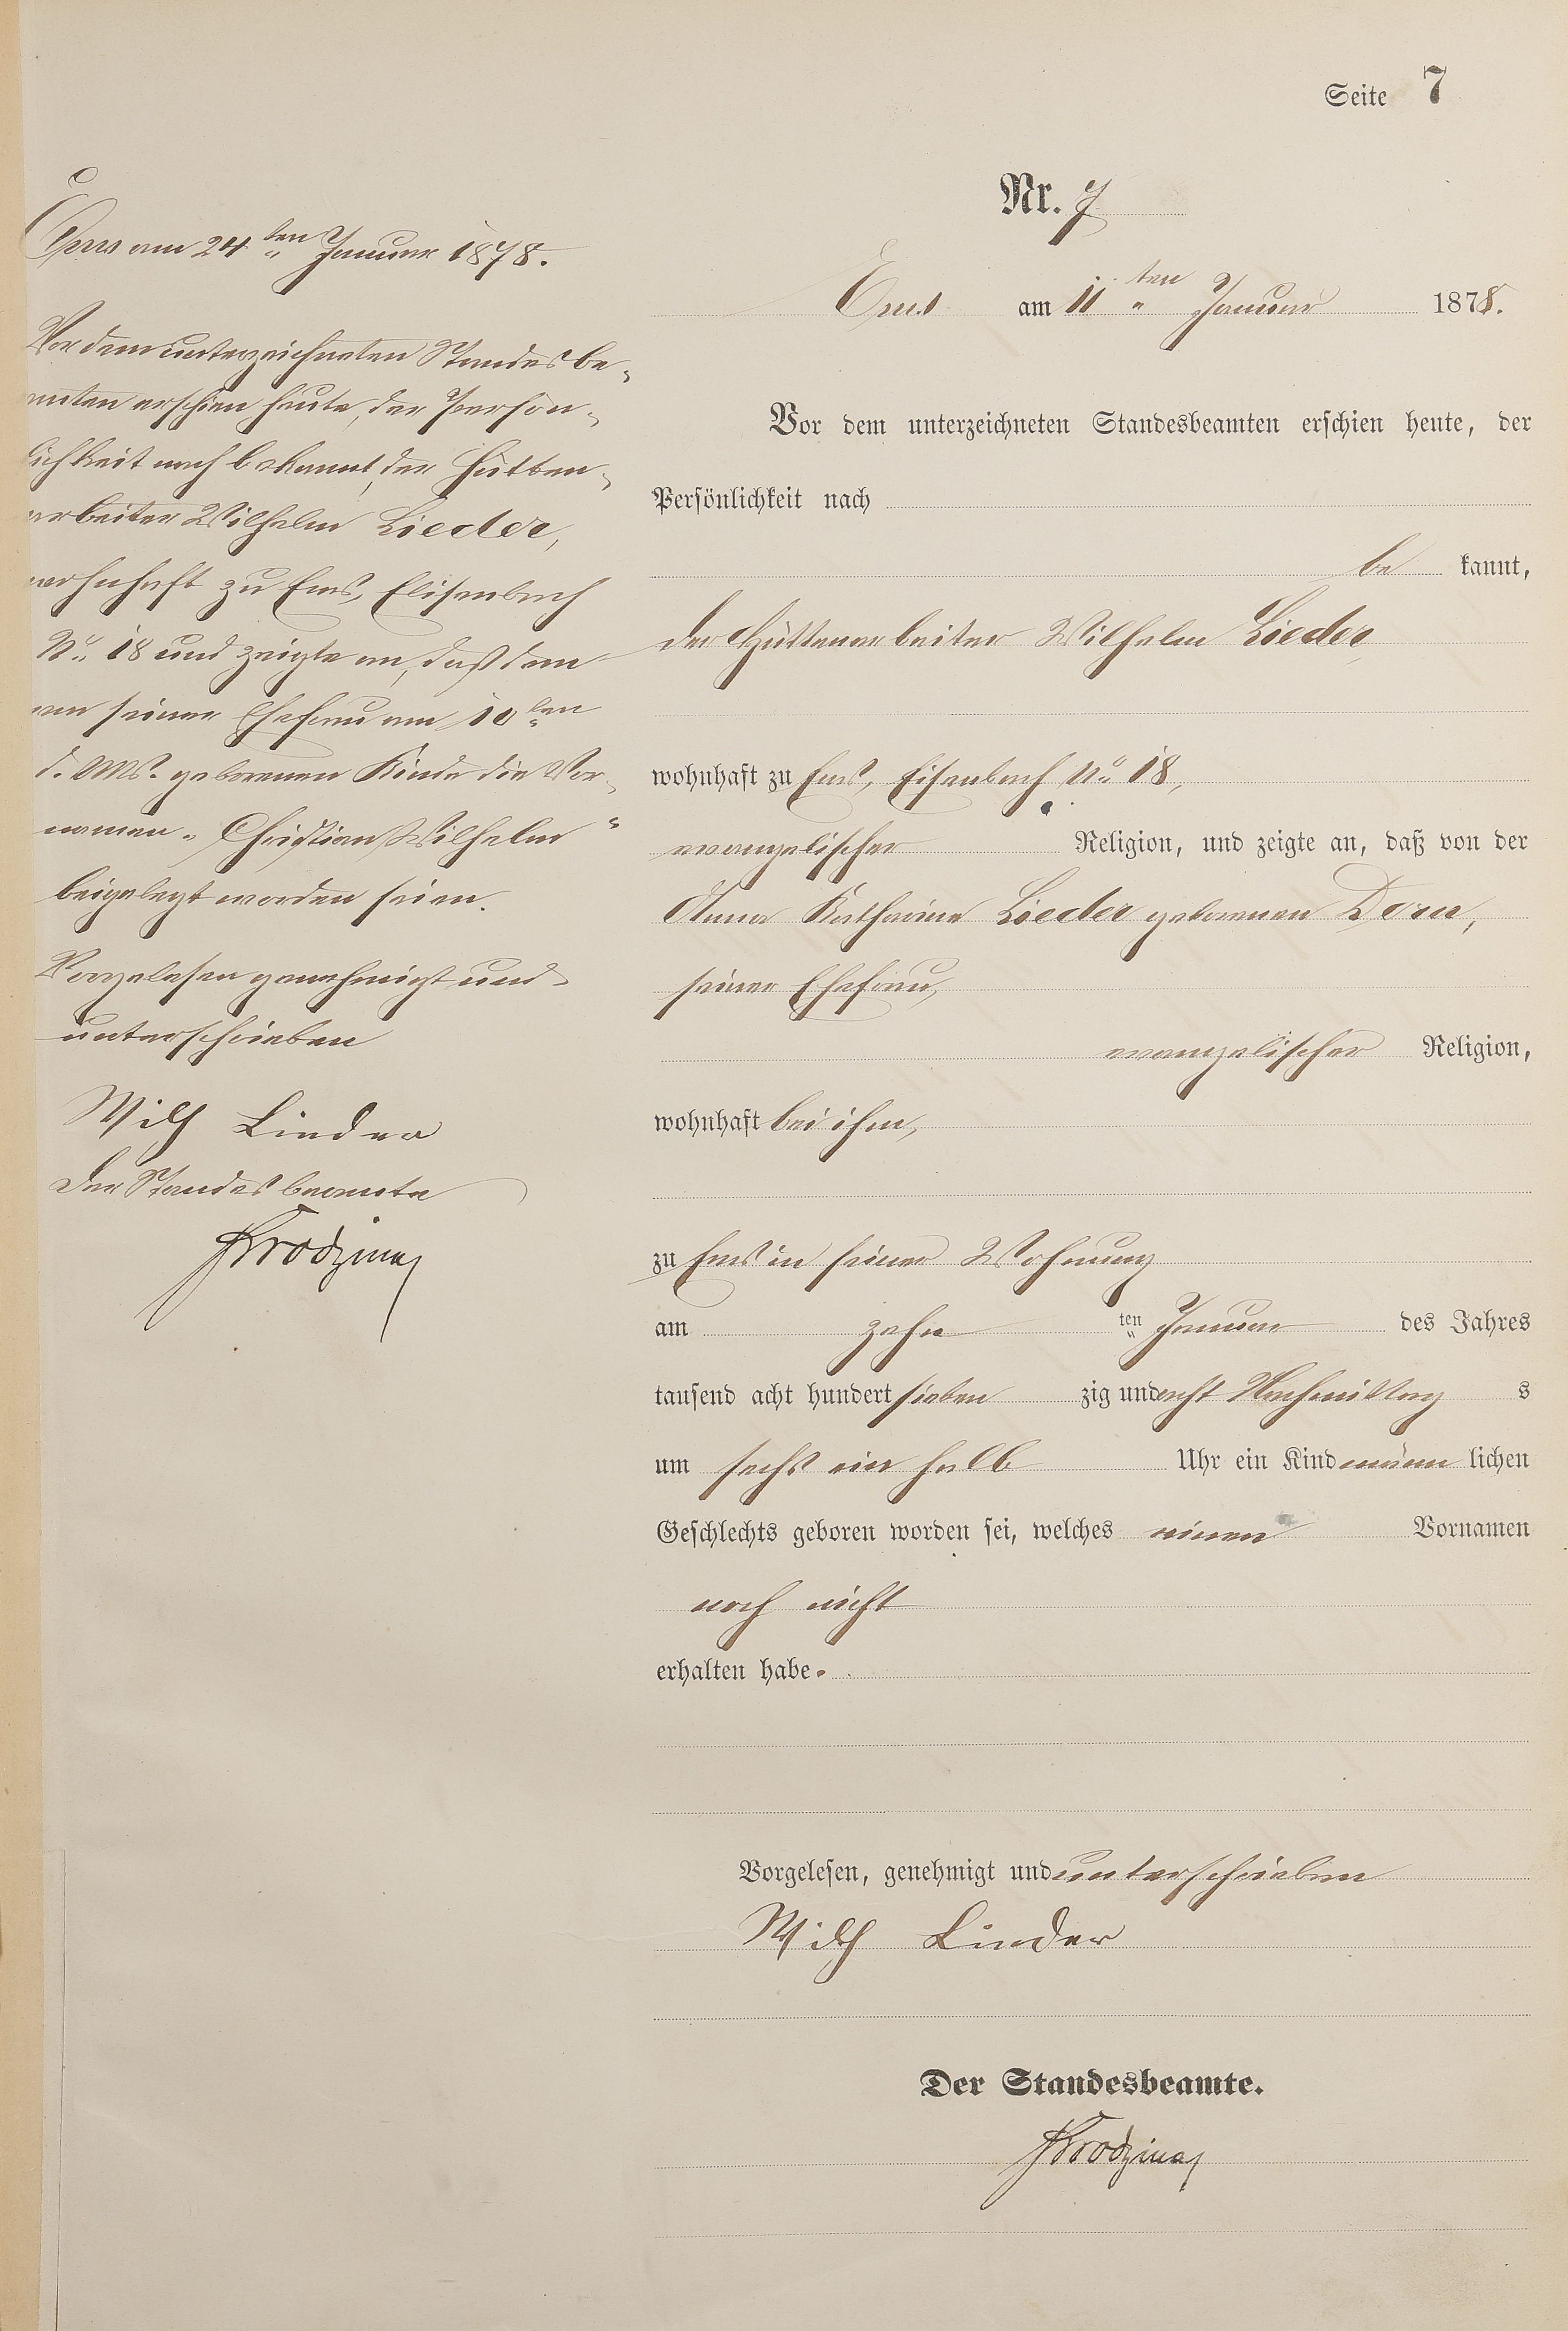 Seite 7
Nr. 7
Ems am 11ten Januar 1878.
Vor dem unterzeichneten Standesbeamten erschien heute, der
Persönlichkeit nach
be kannt,
der Hüttenarbeiter Wilhelm Lieder,
wohnhaft zu Ems, Eisenbach No 18,
evangelischer Religion, und zeigte an, daß von der
Anna Katharina Lieder geborenen Dorn,
seiner Ehefrau,
evangelischer Religion,
wohnhaft bei ihm,
zu Ems in seiner Wohnung
am zehn ten Januar des Jahres
tausend acht hundert sieben zig und acht Nachmittag s
um sechs ein halb Uhr ein Kind männ lichen
Geschlechts geboren worden sei, welches einen Vornamen
noch nicht
erhalten habe.
Vorgelesen, genehmigt und unterschrieben
Wilh Lieder
Der Standesbeamte.
Ems am 24ten Januar 1878.
Vor dem unterzeichneten Standesbe-
amten erschien heute, der Persön-
lichkeit nach bekannt, der Hütten-
arbeiter Wilhelm Lieder,
wohnhaft zu Ems, Elisenbach
No. 18 und zeigte an, daß dem
von seiner Ehefrau am 10ten
d. Mts. geborenen Kinde die Vor-
namen „Christian Wilhelm“
beigelegt worden seien.
Vorgelesen genehmigt und
unterschrieben
Wilh Lieder
Der Standesbeamte